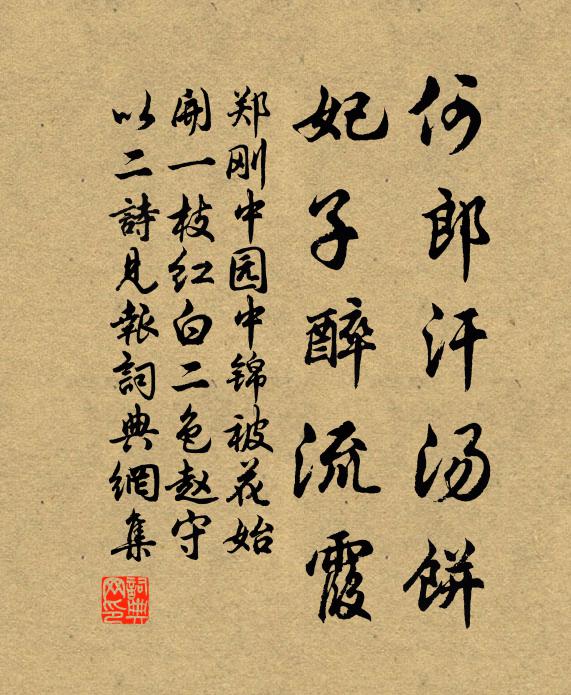 何郎汗汤餅
妃子醉流霞
郑刚中园中锦被花始
開一枝红白二色赵守
以二詩見報詞典網集
詞典网印